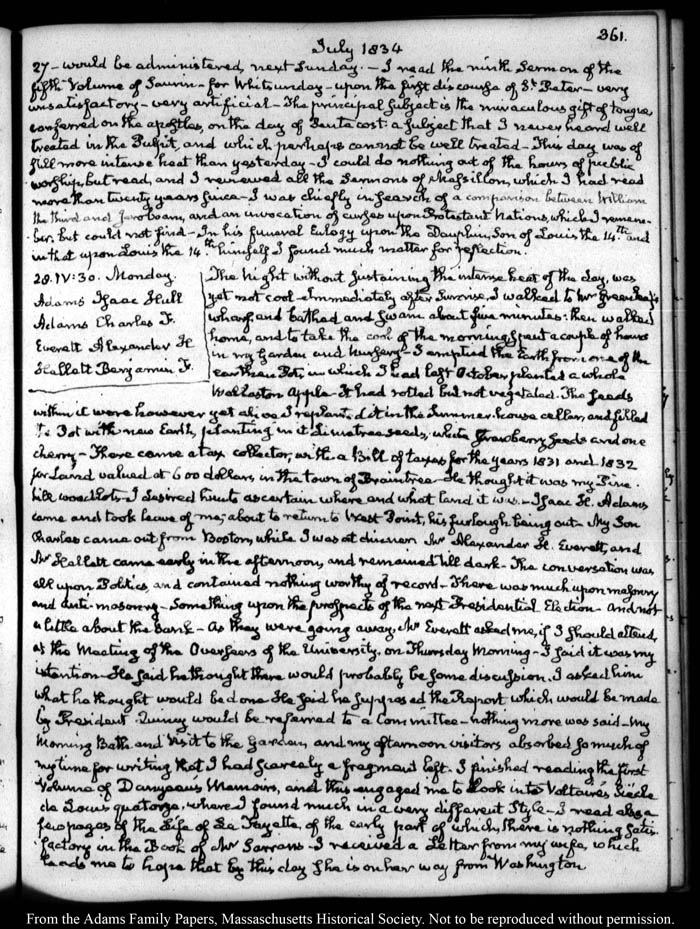 361.
July 1834
27 - would be administered, next Sunday. - I read the ninth Sermon of the
fifth Volume of Saurin - for Whitsunday - upon the first discourse of St. Peter - very
unsatisfactory - very artificial - The principal subject is the miraculous gift of tongues,
conferred on the apostles, on the day of Pentecost: a subject that I never heard well
treated in the Pulpit, and which perhaps cannot be well treated - This day was of
still more intense heat than yesterday - I could do nothing out of the hours of public
worship, but read, and I reviewed all the Sermons of Massillon, which I had read
more than twenty years since - I was chiefly in search of a comparison between William
the third and Jeroboam, and an invocation of curses upon Protestant Nations, which I remem-
ber, but could not find - In his funeral Eulogy upon the Dauphin, Son of Louis the 14.th and
in that upon Louis the 14.th himself I found much matter for reflection.
28. IV:30. Monday.
Adams Isaac Hull
Adams Charles F.
Everett Alexander H
Hallett Benjamin F.
The Night without sustaining the intense heat of the day, was
yet not cool - Immediately after Sunrise, I walked to Mr Greenleaf's
wharf and bathed and swam about five minutes: then walked
home, and to take the cool of the morning spent a couple of hours
in my Garden and Nursery - I emptied the Earth from one of the
earthen Pots, in which I had last October planted a whole
Wollaston Apple - It had rotted but not vegetated. The seeds
within it were however yet alive I replanted it in the Summer-house cellar, and filled
the Pot with new Earth, planting in it Limetree seeds, white Strawberry seeds and one
cherry - There came a tax collector, with a Bill of taxes for the years 1831 and 1832
for Land valued at 600 dollars in the town of Braintree - He thought it was my Pine
hill woodlots - I desired him to ascertain where and what land it was - Isaac H. Adams
came and took leave of me; about to return to West Point, his furlough being out - My Son
Charles came out from Boston, while I was at dinner. Mr Alexander H. Everett, and
Mr Hallett came early in the afternoon, and remained till dark - The conversation was
all upon Politics, and contained nothing worthy of record - There was much upon masonry
and anti-masonry - Something upon the prospects of the next Presidential Election - and not
a little about the bank - As they were going away, Mr Everett asked me, if I should attend,
at the Meeting of the Overseers of the University, on Thursday Morning - I said it was my
intention - He said he thought there would probably be some discussion. I asked him
what he thought would be done He said he supposed the Report which would be made
by President Quincy would be referred to a Committee - nothing more was said - My
Morning Bath and visit to the Garden, and my afternoon visitors absorbed so much of
my time for writing that I had scarcely a fragment left. I finished reading the first
Volume of Dangeau's Memoirs, and this engaged me to look into Voltaire's Siècle
de Louis quatorze, where I found much in a very different Style - I read also a
few pages of the Life of La Fayette, of the early part of which, there is nothing satis-
factory in the Book of Mr Sarrans - I received a Letter from my wife, which
leads me to hope that by this day she is on her way from Washington
From the Adams Family Papers, Massachusetts Historical Society. Not to be reproduced without permission.